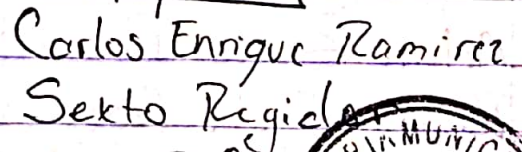 Carlos Enrique Ramirez
Sexto Regidor